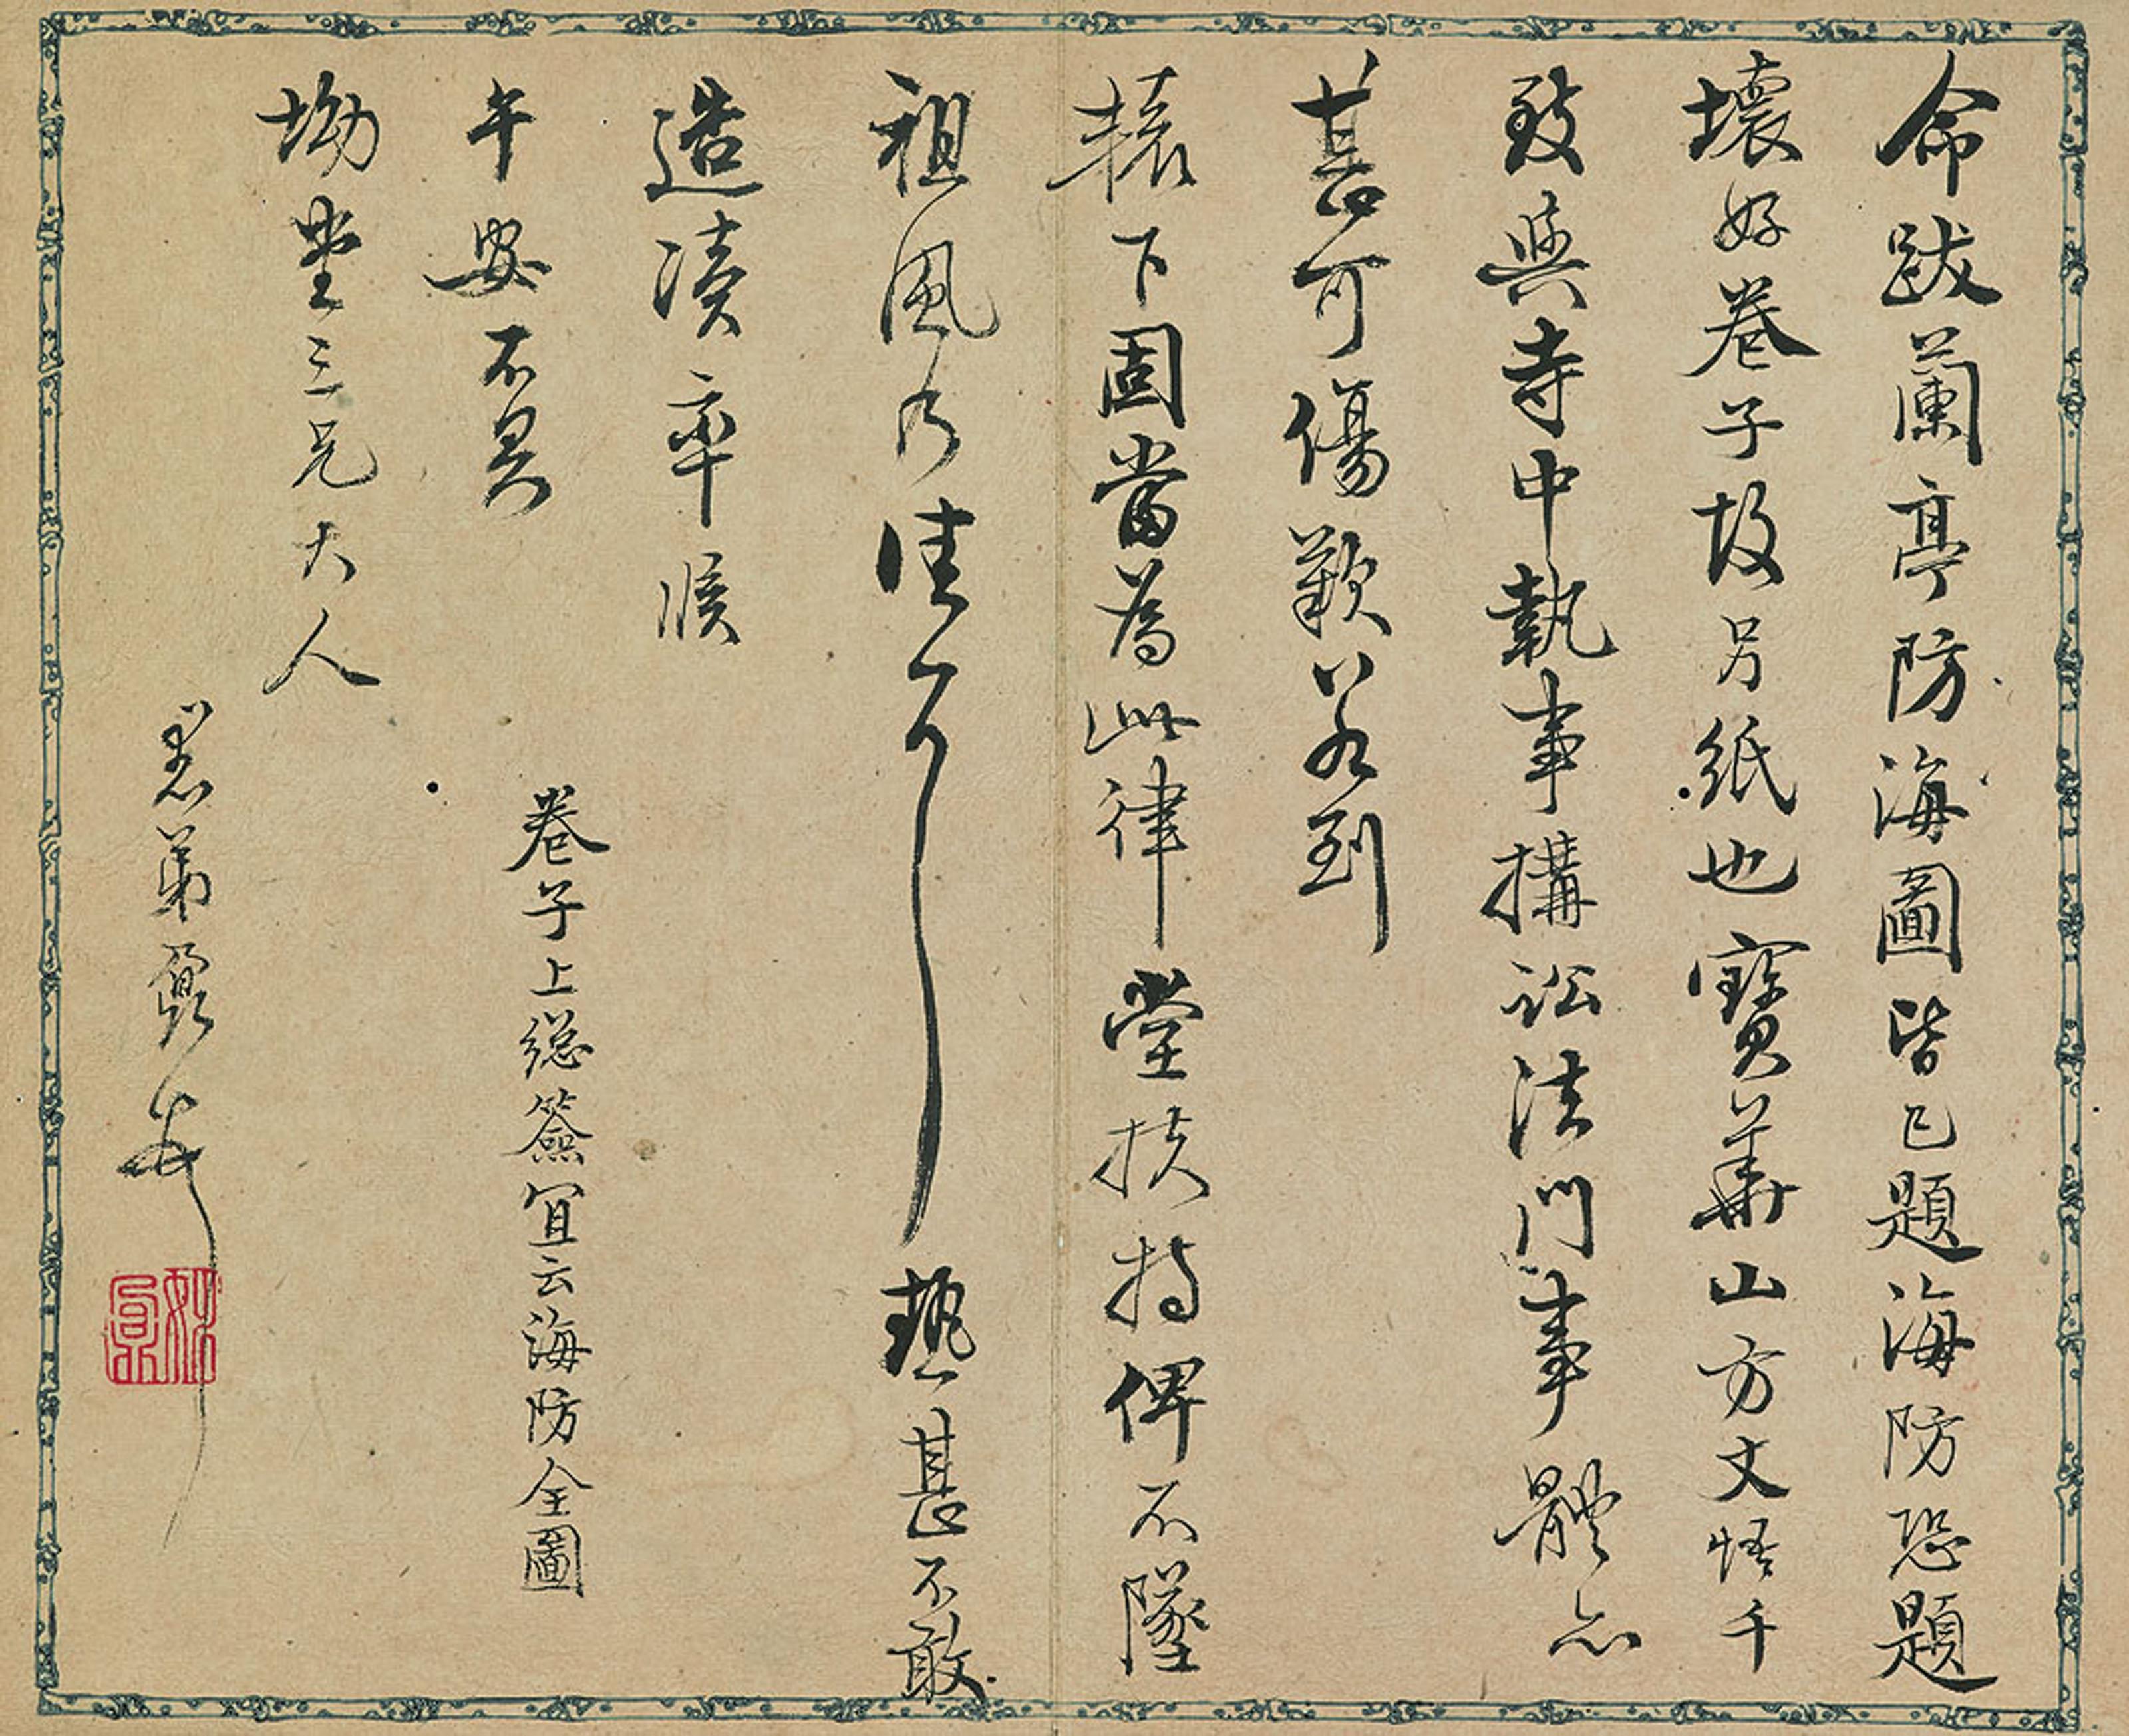 命跋蘭亭防海圖皆已題海防恐題
壞好卷子故另紙也寶華山方丈悟千
致與寺中執事搆訟法門事體亦
甚可傷歎若到
轅下固當為此律堂扶持俾不墜
祖風乃佳耳熱甚不敢
造瀆率候
午安不具
卷子上總簽宜云海防全圖
坳堂三兄大人
愚弟鼐頓首